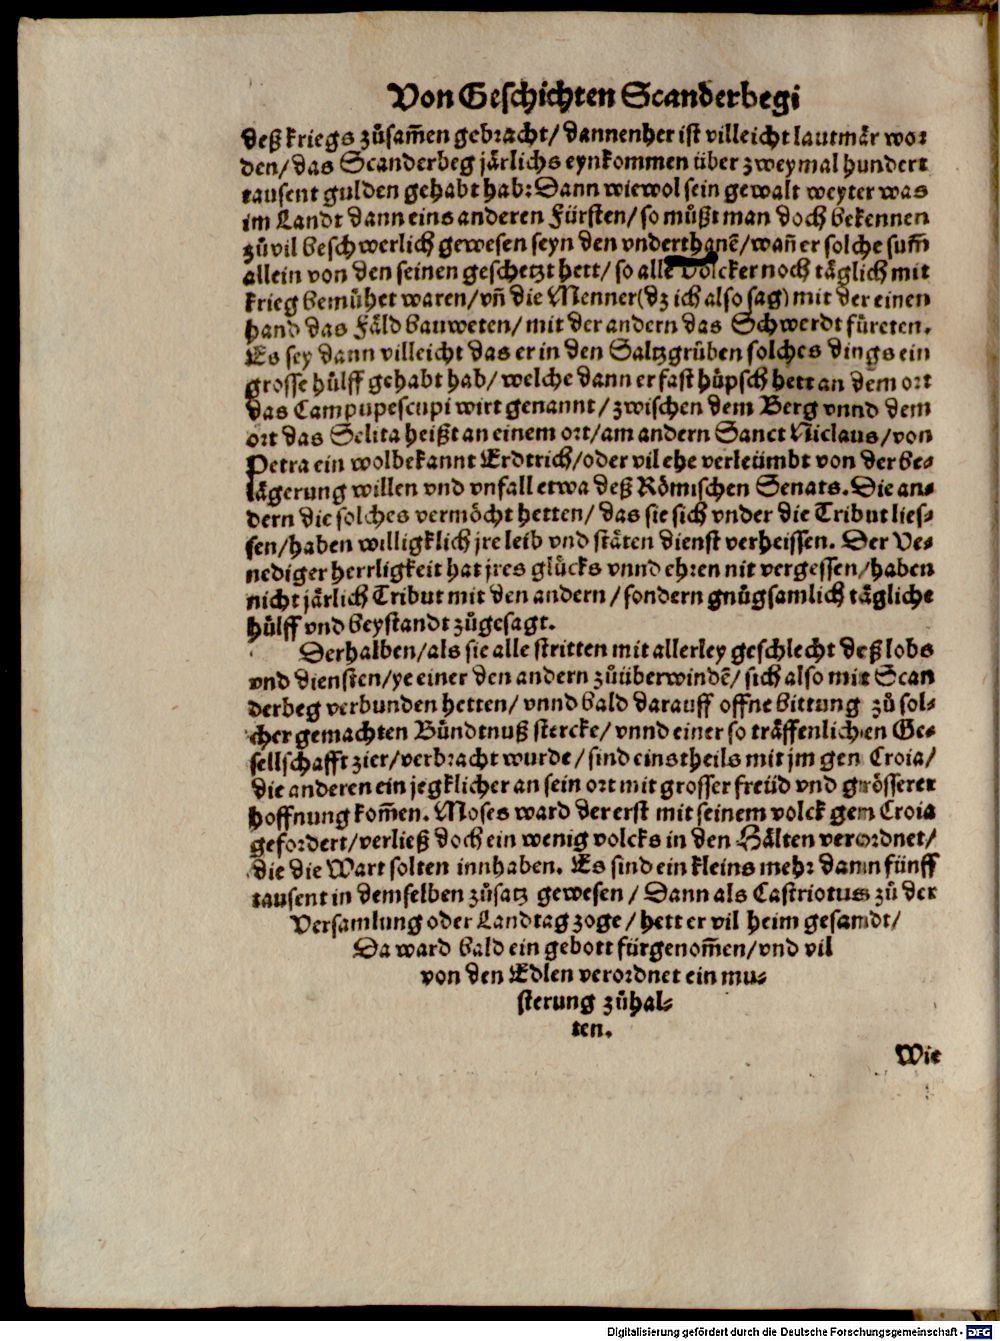 Von Geschichten Scanderbegi
deß kriegs zůsam̃en gebracht/ dannenher ist villeicht lautmär wor
den/ das Scanderbeg järlichs eynkommen über zweymal hundert
tausent gulden gehabt hab: Dann wiewol sein gewalt weyter was
im Landt dann eins anderen Fürsten/ so müßt man doch bekennen
zůvil beschwerlich gewesen seyn den vnderthanẽ/ wañ er solche sum̃
allein von den seinen geschetzt hett/ so alle völcker noch täglich mit
krieg bemühet waren/ vñ die Menner (dz ich also sag) mit der einen
hand das Fäld bauweten/ mit der andern das Schwerdt füreten.
Es sey dann villeicht das er in den Saltzgrüben solches dings ein
grosse hülff gehabt hab/ welche dann er fast hüpsch hett an dem ort
das Campupescupi wirt genannt/ zwischen dem Berg vnnd dem
ort das Selita heißt an einem ort/ am andern Sanct Niclaus/ von
Petra ein wolbekannt Erdtrich/ oder vil ehe verleümbt von der be⸗
lägerung willen vnd vnfall etwa deß Römischen Senats. Die an⸗
dern die solches vermöcht hetten/ das sie sich vnder die Tribut lies⸗
sen/ haben willigklich jre leib vnd stäten dienst verheissen. Der Ve⸗
nediger herrligkeit hat jres glücks vnnd ehren nit vergessen/ haben
nicht järlich Tribut mit den andern/ sondern gnůgsamlich tägliche
hülff vnd beystandt zůgesagt.
Derhalben/ als sie alle stritten mit allerley geschlecht deß lobs
vnd diensten/ ye einer den andern zůüberwindẽ/ sich also mit Scan
derbeg verbunden hetten/ vnnd bald darauff offne bittung zů sol⸗
cher gemachten Bündtnuß stercke/ vnnd einer so träffenlichen Ge⸗
sellschafft zier/ verbracht wurde/ sind eins theils mit jm gen Croia/
die anderen ein jegklicher an sein ort mit grosser freüd vnd grösserer
hoffnung kom̃en. Moses ward der erst mit seinem volck gen Croia
gefordert/ verließ doch ein wenig volcks in den Hälten verordnet/
die die Wart solten innhaben. Es sind ein kleins mehr dann fünff
tausent in demselben zůsatz gewesen/ Dann als Castriotus zů der
Versamlung oder Landtag zoge/ hett er vil heim gesandt/
Da ward bald ein gebott fürgenom̃en/ vnd vil
von den Edlen verordnet ein mu⸗
sterung zůhal⸗
ten.
Wie
Digitalisierung gefördert durch die Deutsche Forschungsgemeinschaft - DFG